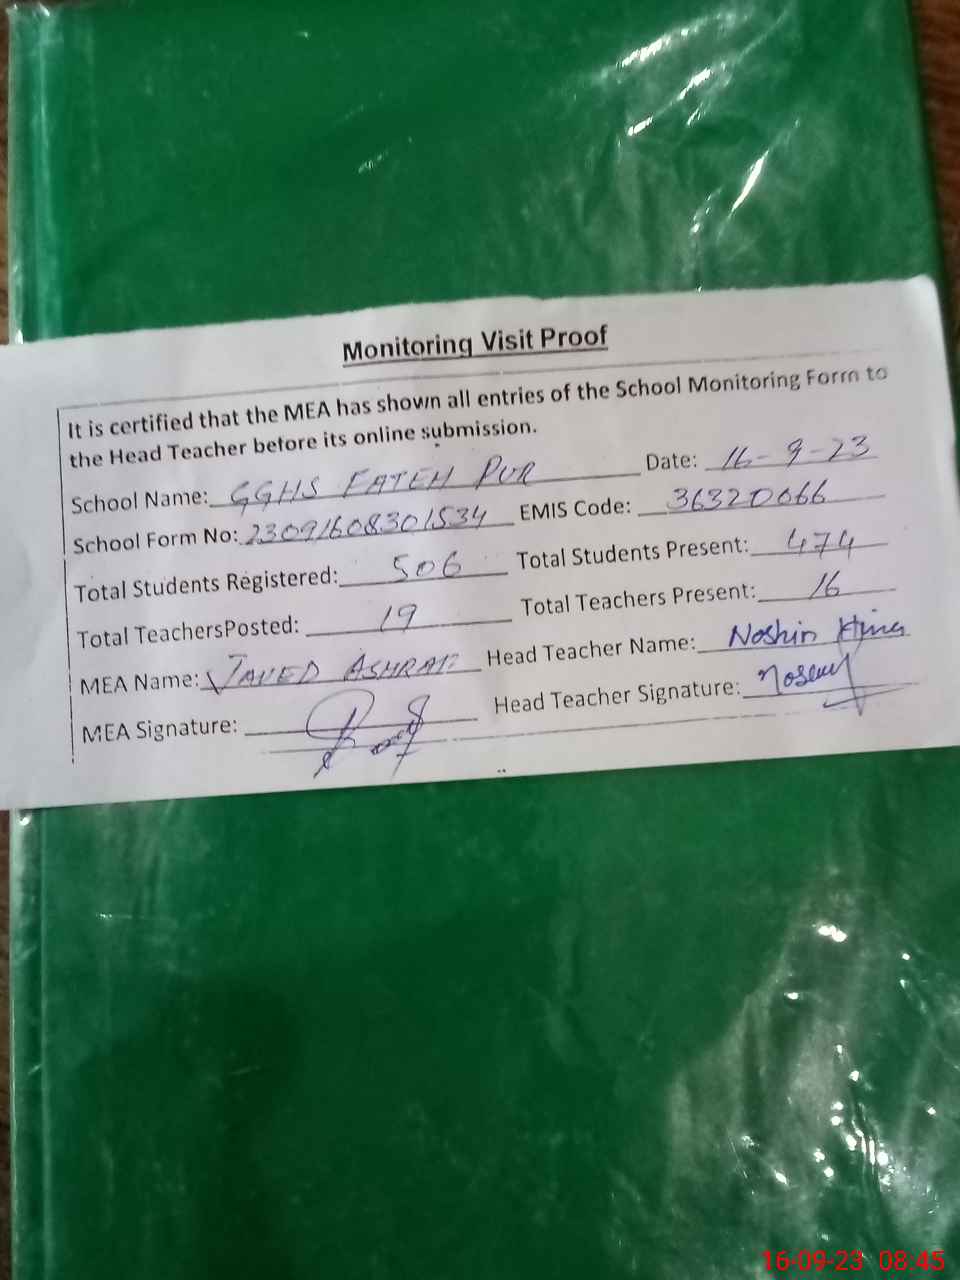 Monitoring Visit Proof
It is certified that the MEA has shown all entries of the School Monitoring Form to
the Head Teacher before its online submission.
School Name: GGHS FATEH PUR Date: 16-9-23
School Form No: 23091608301534 EMIS Code: 36320066
Total Students Registered: 506 Total Students Present: 474
Total TeachersPosted: 19 Total Teachers Present: 16
MEA Name: JAVED ASHRAF Head Teacher Name: Noshin
MEA Signature: Head Teacher Signature:
16-09-23 08:45